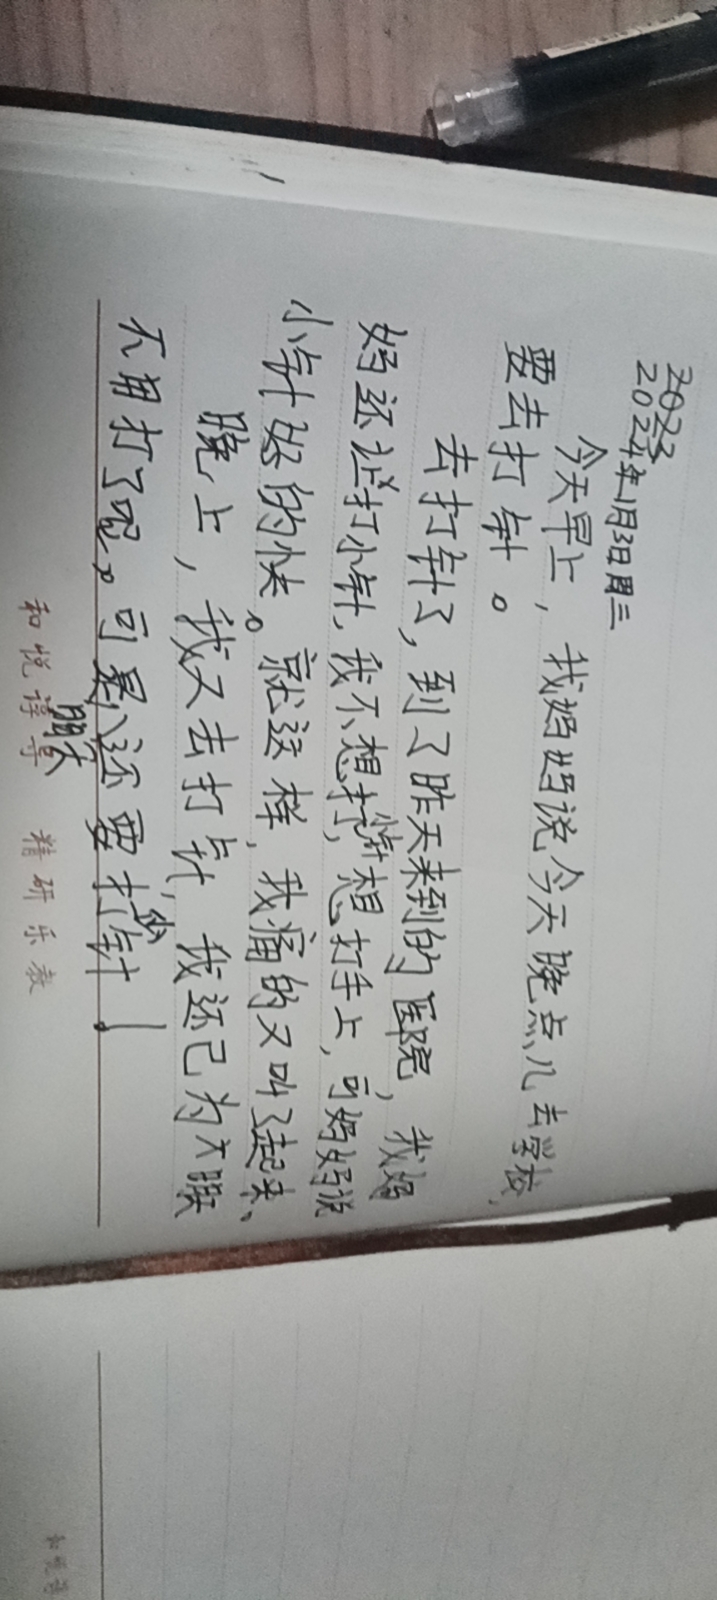 2023
2024年1月3日周三
今天早上，我妈妈说今天晚点儿去学校，
要去打针。
去打针了，到了昨天来到的医院，我妈
妈还让打小针，我不想打小针，想打手上，可妈妈说
小针好的快。就这样，我痛的又叫了起来、
晚上，我又去打针，我还已为不明天
不用打了呢。可是，明天还要打小针！
和悦谆导 精研乐教